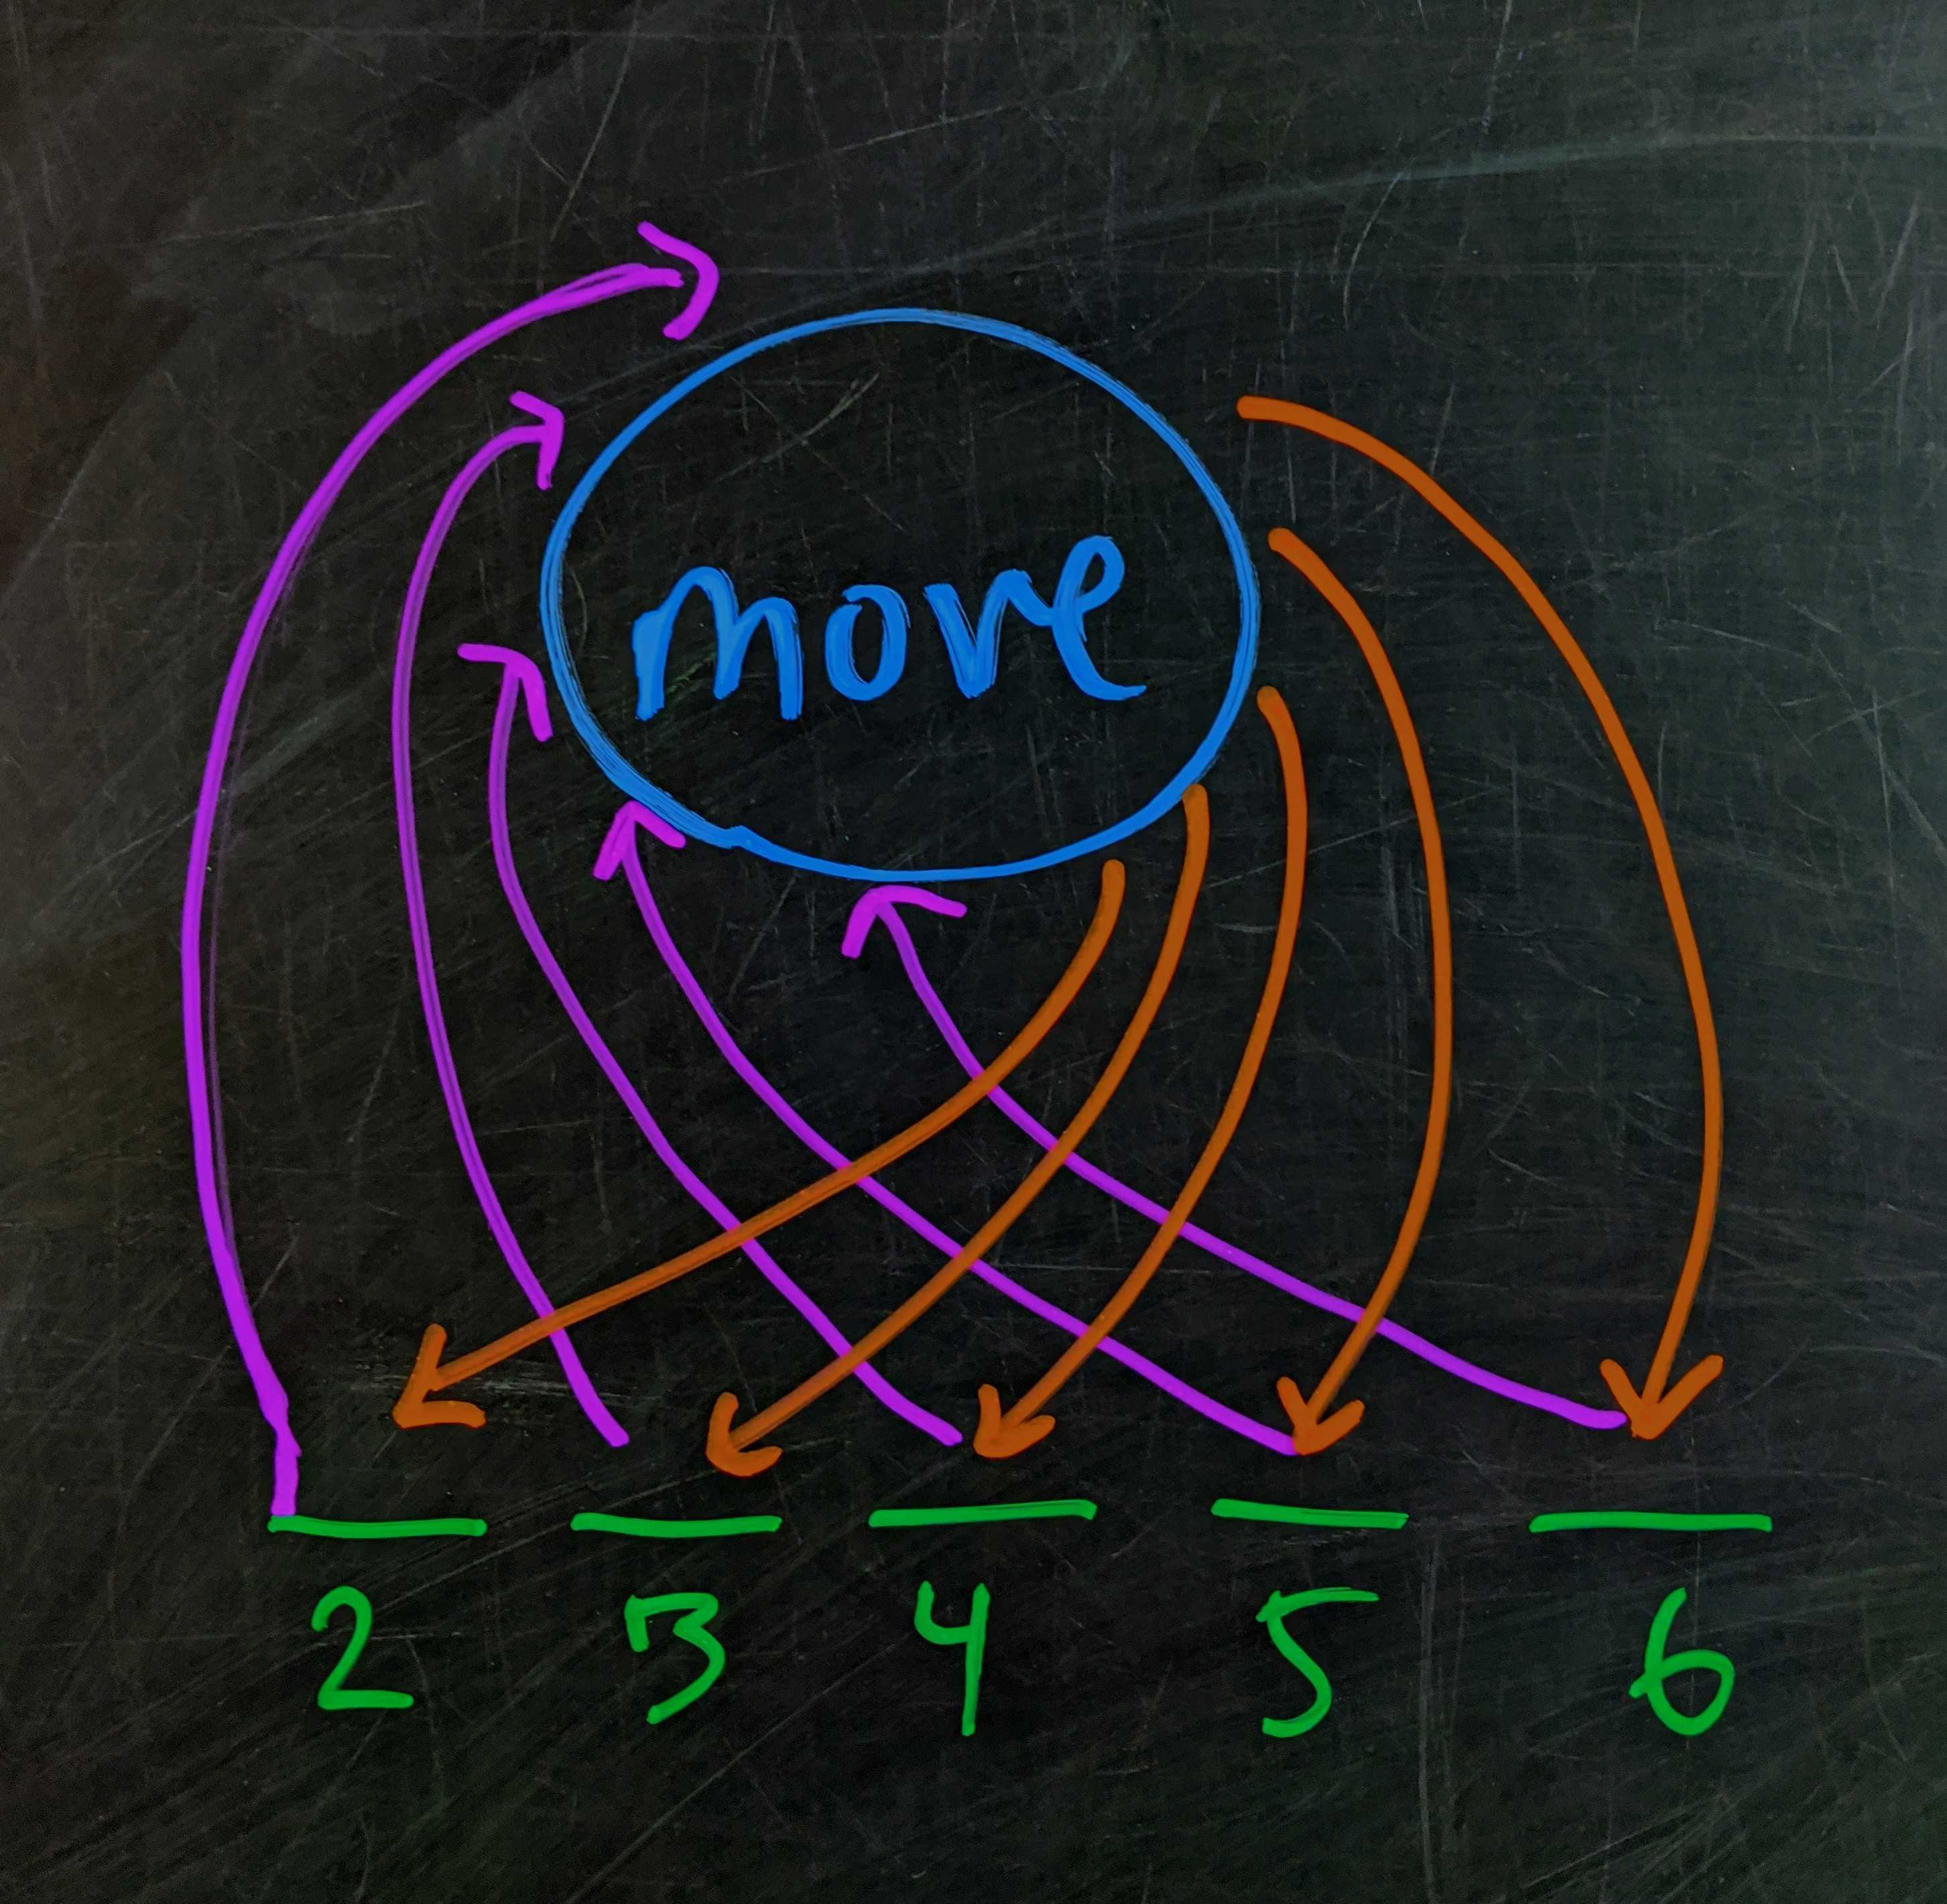 move
2 3 4 5 6